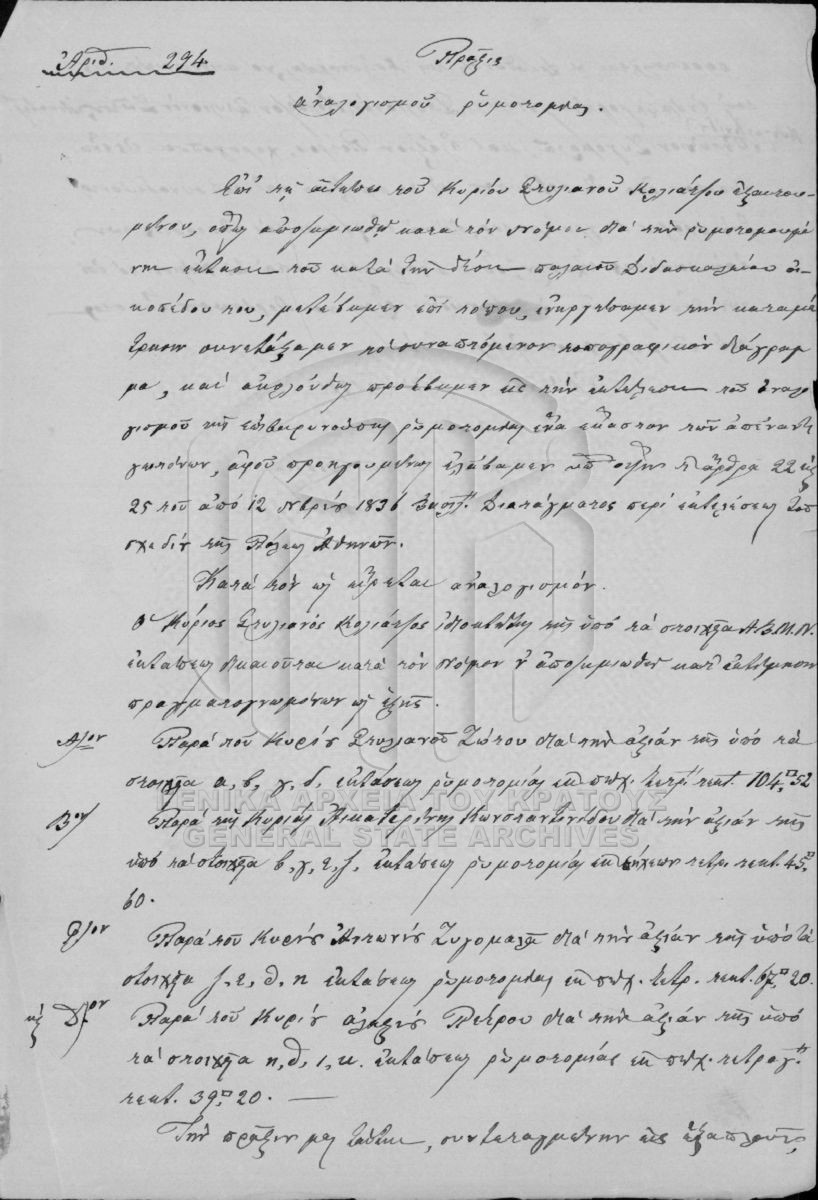 Ἀριθ. 294.
Πρᾶξις
ἀναλογισμοῦ ῥυμοτομίας.
Ἐπὶ τῇ αἰτήσει τοῦ Κυρίου Στυλιανοῦ Κολιάτσου ἐξαιτου-
μένου, ὅπως ἀποζημιωθῇ κατὰ τὸν Νόμον διὰ τὴν ῥυμοτομουμέ
νην ἔκτασιν τοῦ κατὰ τὴν θέσιν παλαιοῦ Διδασκαλείου οἰ-
κοπέδου του, μετέβημεν ἐπὶ τόπου, ἐνηργήσαμεν τὴν καταμέ
τρησιν συνετάξαμεν τὸ συναπτόμενον τοπογραφικὸν διάγραμ
μα, καὶ ἀκολούθως προέβημεν εἰς τὴν ἐκτέλεσιν τοῦ ἀναλο
γισμοῦ τῆς ἐπιβαρυνούσης ῥυμοτομίας ἕνα ἕκαστον τῶν ἀπέναντι
γειτόνων, ἀφοῦ προηγουμένως ἐλάβαμεν ὑπ' ὄψιν τὰ ἄρθρα 22 ἕως
25 τοῦ ἀπὸ 12 Νβρίου 1836 Βασιλ. Διατάγματος περὶ ἐκτελέσεως τοῦ
σχεδίου τῆς Πόλεως Ἀθηνῶν.
Κατὰ τὸν ὡς εἴρεται ἀναλογισμόν.
Ὁ Κύριος Στυλιανὸς Κολιάτσος ἰδιοκτήτης τῆς ὑπὸ τὰ στοιχεῖα Α.Β.Μ.Ν.
ἐκτάσεως δικαιοῦται κατὰ τὸν Νόμον ν' ἀποζημιωθῇ κατ' ἐκτίμησιν
πραγματογνωμόνων ὡς ἑξῆς.
Αʹον Παρὰ τοῦ Κυρίου Στυλιανοῦ Ζώτου διὰ τὴν ἀξίαν τῆς ὑπὸ τὰ
στοιχεῖα α, β, γ, δ, ἐκτάσεως ῥυμοτομίας ἐκ πήχ. τετρ. τεκτ. 104,52
Βον Παρὰ τῆς Κυρίας Αἰκατερίνης Κωνσταντινίδου διὰ τὴν ἀξίαν τῆς
ὑπὸ τὰ στοιχεῖα β, γ, ε, ζ, ἐκτάσεως ῥυμοτομίας ἐκ πήχεων τετρ. τεκτ. 45,
60.
Γον Παρὰ τοῦ Κυρίου Ἀντωνίου Ζυγομαλᾶ διὰ τὴν ἀξίαν τῆς ὑπὸ τὰ
στοιχεῖα ζ, ε, θ, η ἐκτάσεως ῥυμοτομίας ἐκ πήχ. τετρ. τεκτ. 67,20.
καὶ Δον Παρὰ τοῦ Κυρίου Ἀλεξίου Πέτρου διὰ τὴν ἀξίαν τῆς ὑπὸ
τὰ στοιχεῖα η, θ, ι, κ. ἐκτάσεως ῥυμοτομίας ἐκ πήχ. τετραγ.
τεκτ. 39,20. —
Τὴν πρᾶξιν μας ταύτην, συντεταγμένην εἰς ἑξαπλοῦν,
ΓΕΝΙΚΑ ΑΡΧΕΙΑ ΤΟΥ ΚΡΑΤΟΥΣ
GENERAL STATE ARCHIVES